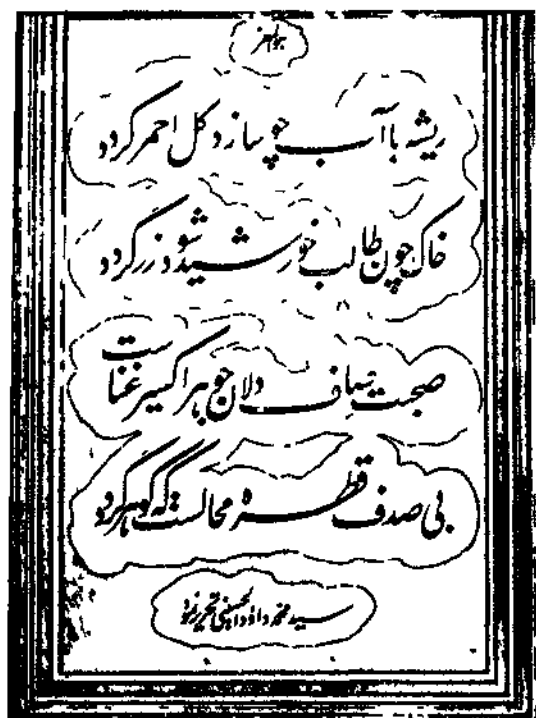 هو المعز
ریشه با آب چو سازد گل احمر گردد
خاک چون طالب خورشید شود زر گردد
صحبت صاف دلان جوهر اکسیر غناست
بی صدف قطره محالست که گوهر گردد
سید محمد داؤد الحسینی تحریر نمود